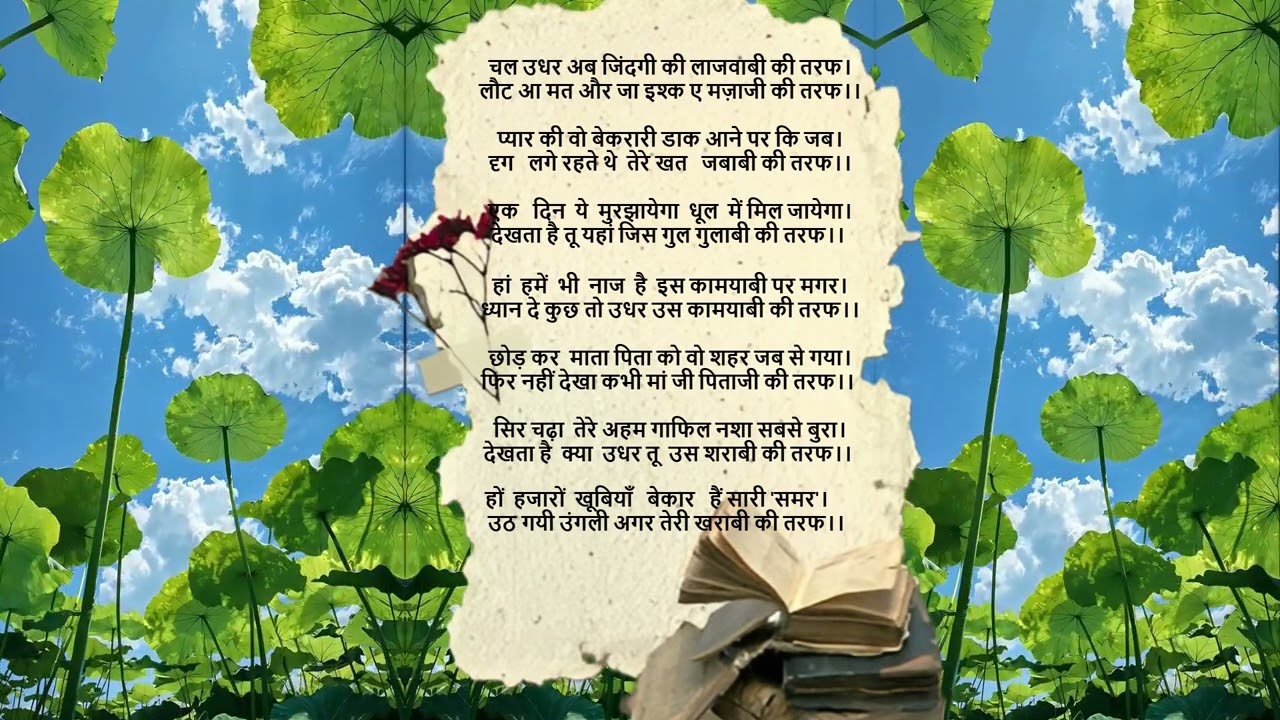 चल उधर अब जिंदगी की लाजवाबी की तरफ।
लौट आ मत और जा इश्क ए मज़ाजी की तरफ।।
प्यार की वो बेकरारी डाक आने पर कि जब।
दृग लगे रहते थे तेरे खत जबाबी की तरफ।।
एक दिन ये मुरझायेगा धूल में मिल जायेगा।
देखता है तू यहां जिस गुल गुलाबी की तरफ।।
हां हमें भी नाज है इस कामयाबी पर मगर।
ध्यान दे कुछ तो उधर उस कामयाबी की तरफ।।
छोड़ कर माता पिता को वो शहर जब से गया।
फिर नहीं देखा कभी मां जी पिताजी की तरफ।।
सिर चढ़ा तेरे अहम गाफिल नशा सबसे बुरा।
देखता है क्या उधर तू उस शराबी की तरफ।।
हों हजारों खूबियाँ बेकार हैं सारी 'समर'।
उठ गयी उंगली अगर तेरी खराबी की तरफ।।